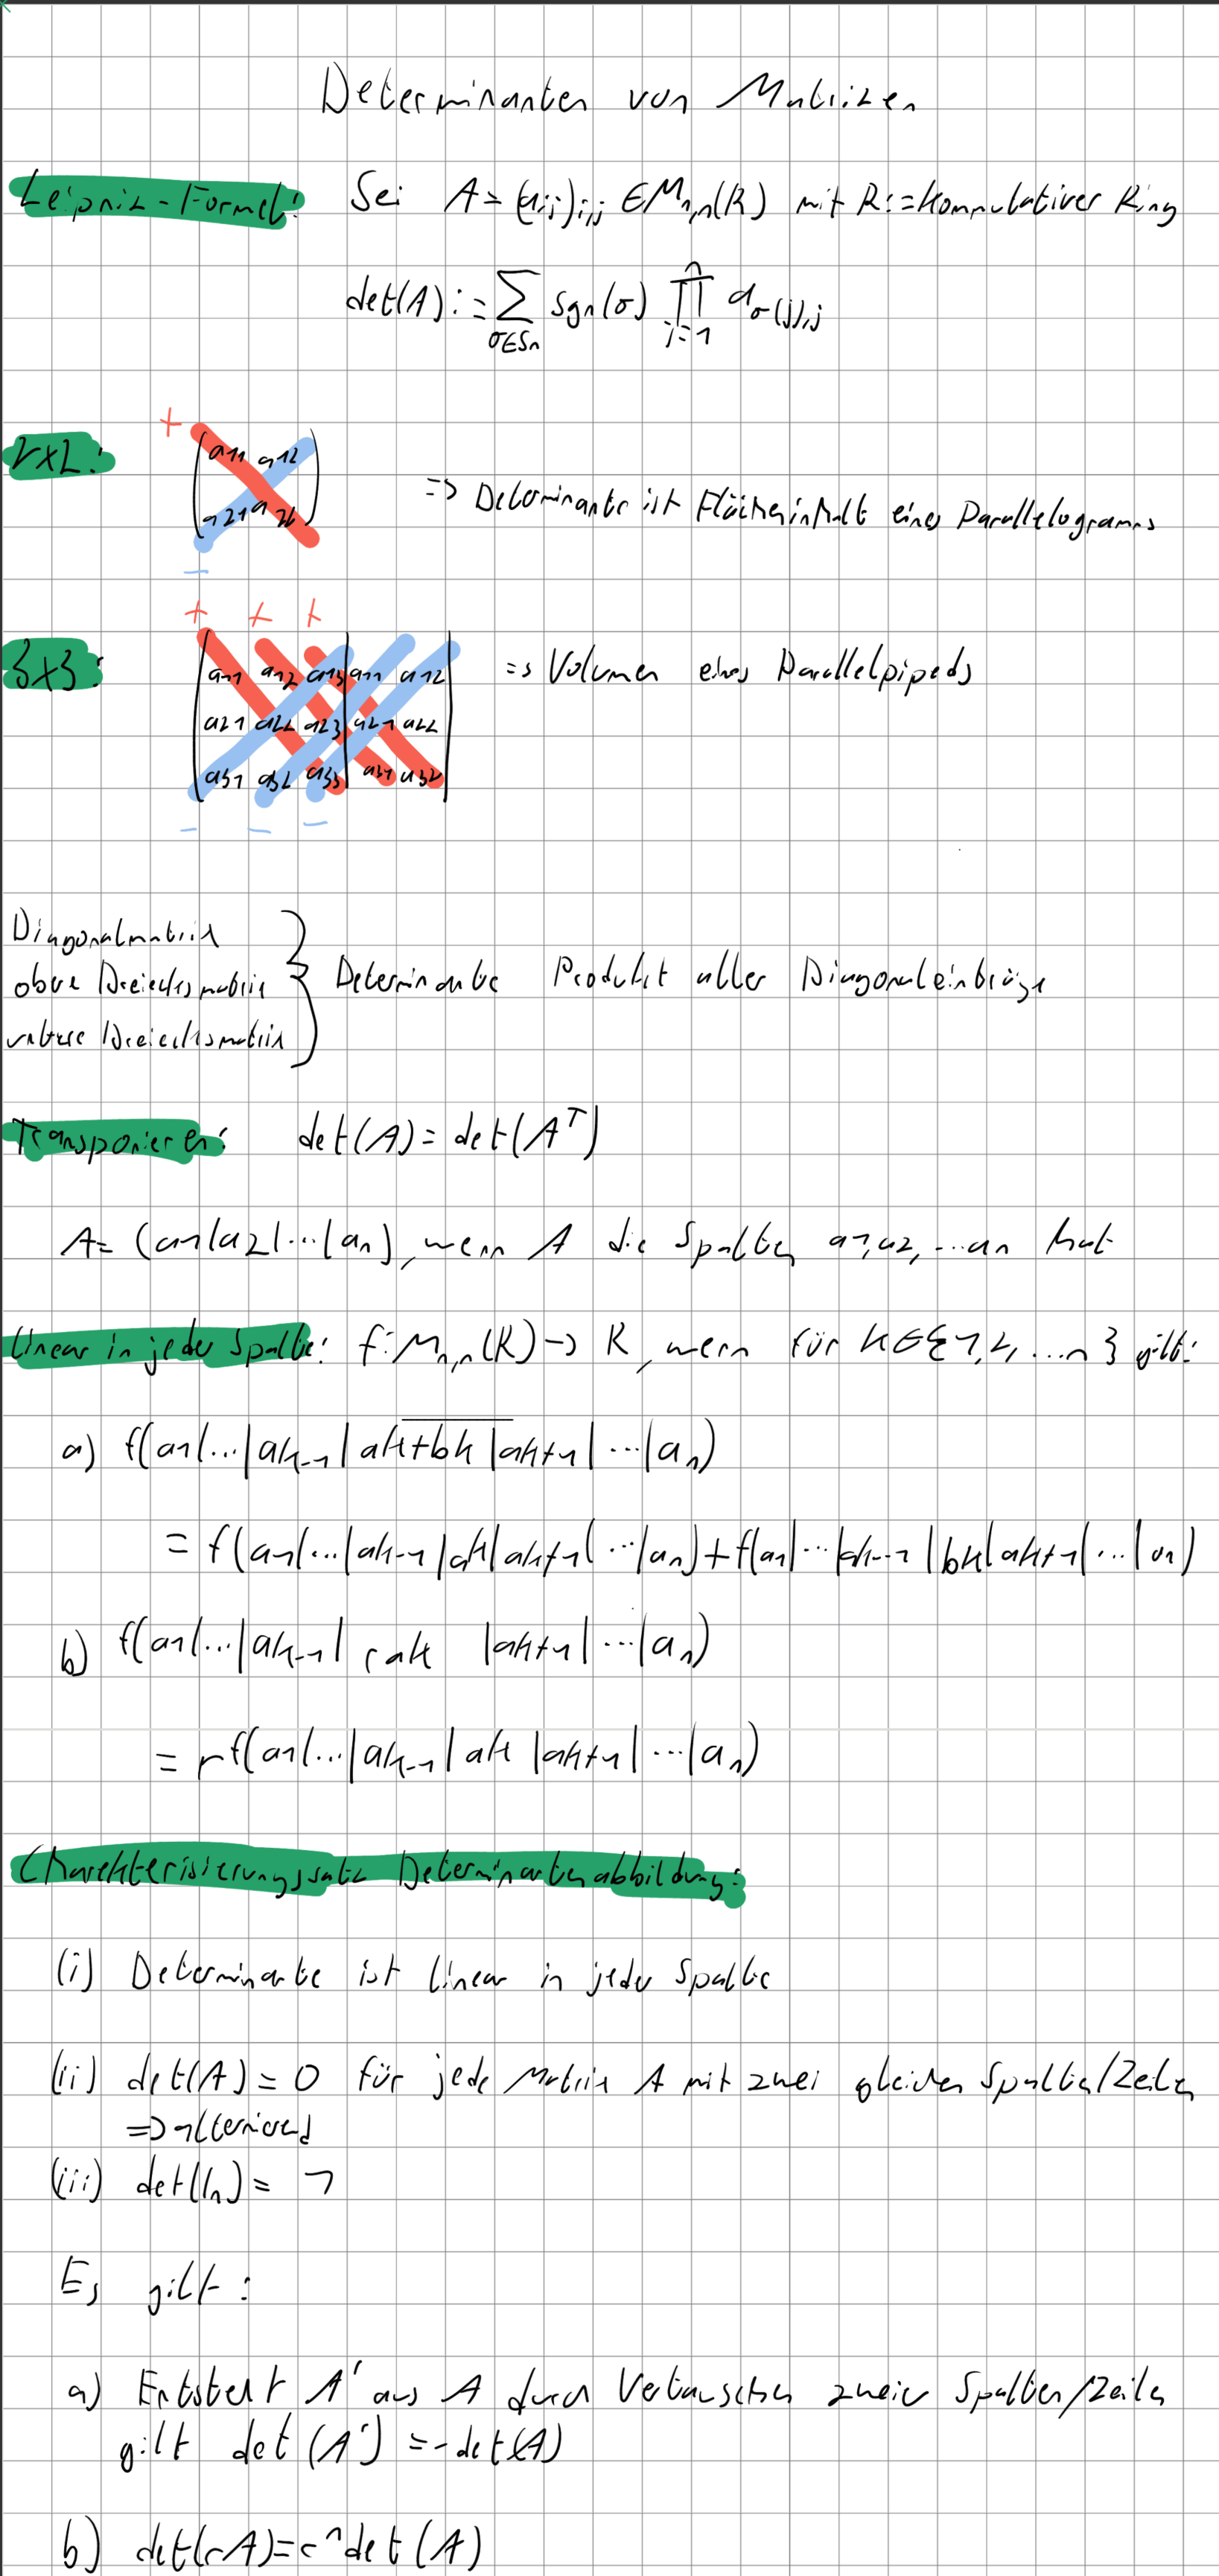 Determinanten von Matrizen
Leipniz-Formel: Sei A = (aij)i,j ∈ Mn,n(R) mit R := kommutativer Ring
det(A) := ∑ sgn(σ) ∏ aσ(j),j
σ∈Sn j=1 n
2x2:
+
a11 a12
a21 a22
−
=> Determinante ist Flächeninhalt eines Parallelogramms
3x3:
+ + +
a11 a12 a13 a11 a12
a21 a22 a23 a21 a22
a31 a32 a33 a31 a32
− − −
=> Volumen eines Parallelpipeds
Diagonalmatrix
obere Dreiecksmatrix } Determinante Produkt aller Diagonaleinträge
untere Dreiecksmatrix
Transponieren: det(A) = det(A^T)
A = (a1|a2|...|an), wenn A die Spalten a1,a2,...an hat
Linear in jeder Spalte: f: Mn,n(K) -> K, wenn für k∈{1,2,...n} gilt:
a) f(a1|...|ak-1|ak+bk|ak+1|...|an)
= f(a1|...|ak-1|ak|ak+1|...|an) + f(a1|...|ak-1|bk|ak+1|...|an)
b) f(a1|...|ak-1| rak |ak+1|...|an)
= rf(a1|...|ak-1|ak|ak+1|...|an)
Charakterisierungssatz Determinantenabbildung:
(i) Determinante ist linear in jeder Spalte
(ii) det(A) = 0 für jede Matrix A mit zwei gleichen Spalten/Zeilen
=> alternierend
(iii) det(In) = 1
Es gilt:
a) Entsteht A' aus A durch Vertauschen zweier Spalten/Zeilen
gilt det(A') = -det(A)
b) det(rA) = r^n det(A)